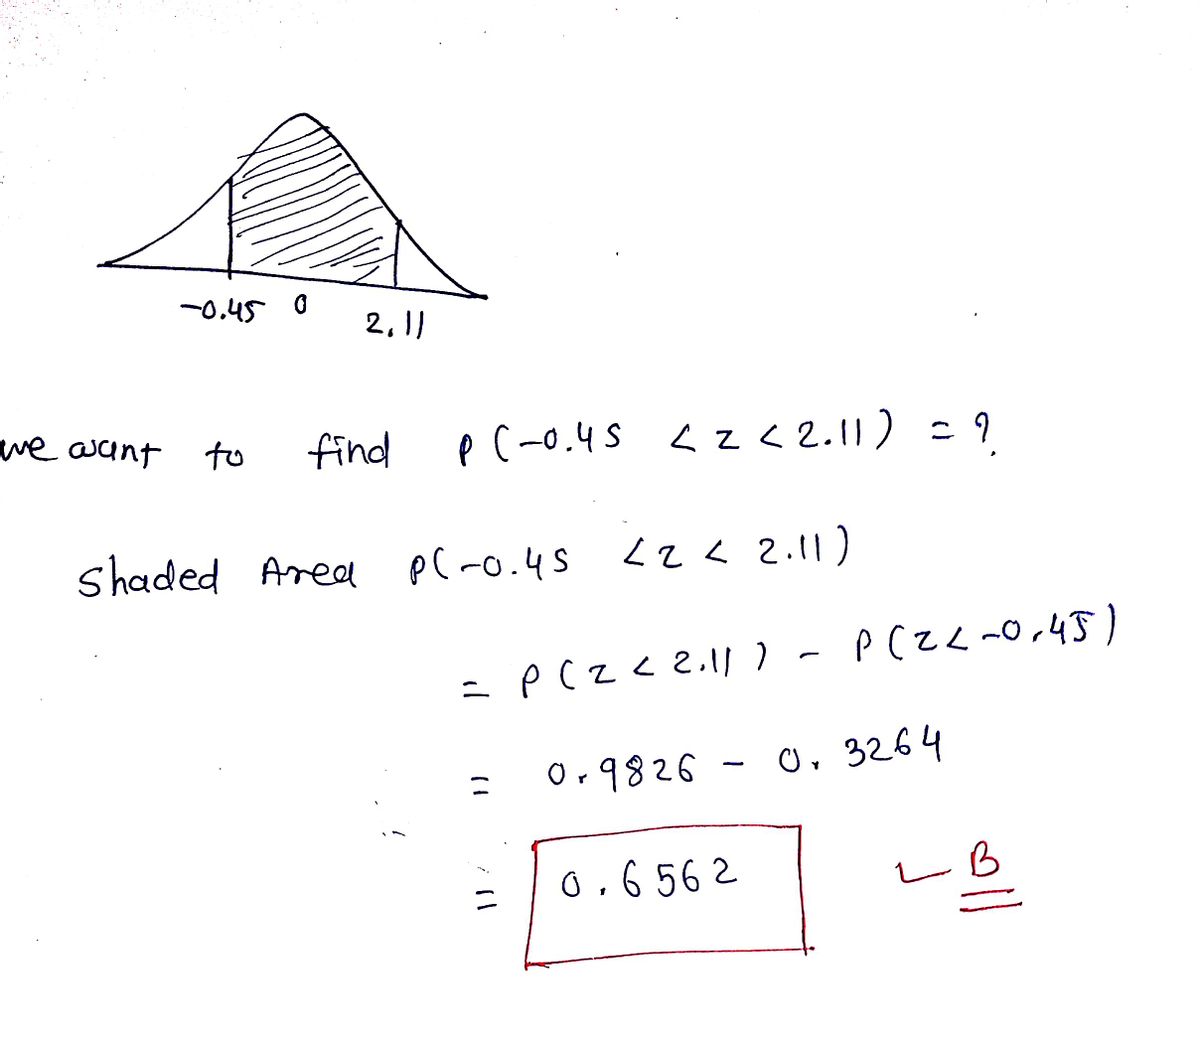 -0.45 0 2.11
we want to find P(-0.45 < z < 2.11) = ?
Shaded Area P(-0.45 < z < 2.11)
= P(z < 2.11) - P(z < -0.45)
= 0.9826 - 0.3264
= 0.6562 B